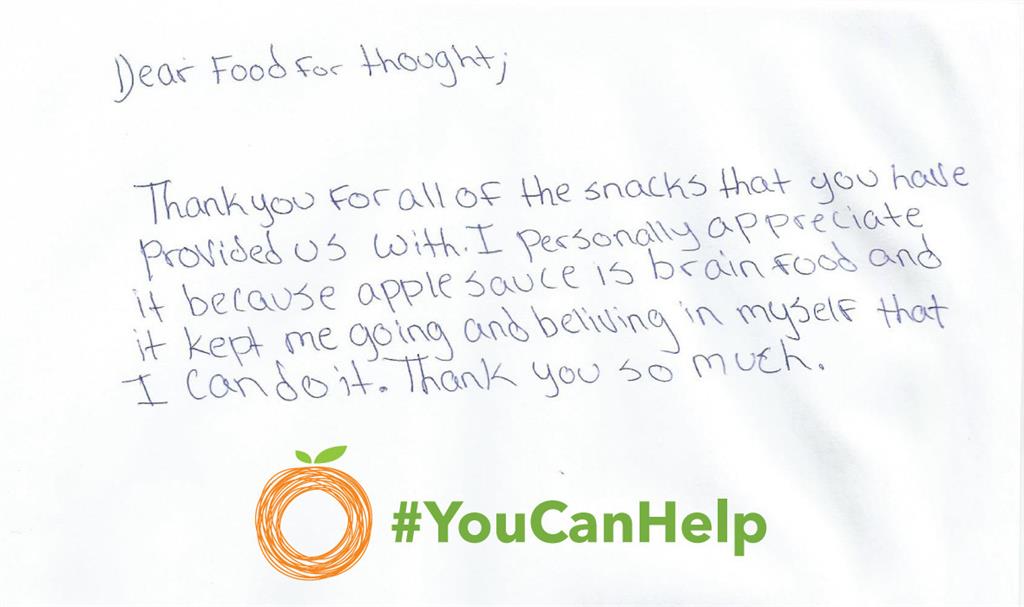 Dear Food for thought;
Thankyou for all of the snacks that you have
provided us with. I personally appreciate
it because apple sauce is brain food and
it kept me going and beliving in myself that
I can do it. Thank you so much.
#YouCanHelp